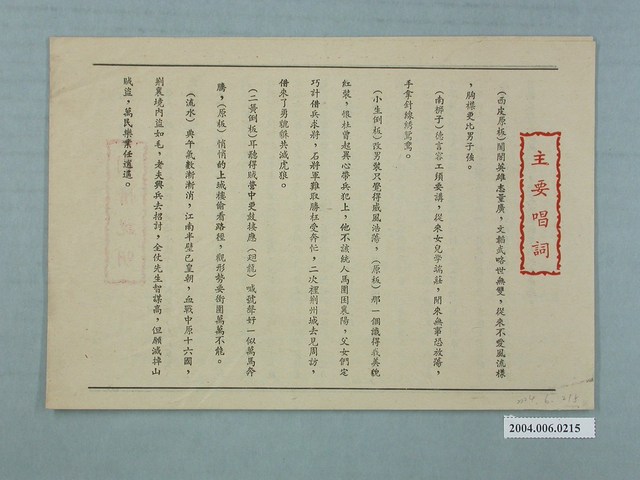 主要唱詞
(西皮原板)閨閣英雄志量廣，文韜武略世無雙，從來不愛風流樣
，胸襟更比男子強。
(南梆子)德言容工須要講，從來女兒學端莊，閒來無事恐放蕩，
手拿針線綉鴛鴦。
(小生倒板)改男裝只覺得威風浩蕩，(原板)那一個識得我美貌
紅裝，恨杜曾起異心帶兵犯上，他不該統人馬圍困襄陽，父女們定
巧計借兵求將，石將軍難取勝枉受奔忙，二次裡荊州城去見周訪，
借來了勇貔貅共滅虎狼。
(二簧倒板)耳聽得賊營中更鼓接應(廻龍)喊號聲好一似萬馬奔
騰，(原板)悄悄的上城樓偷看路徑，觀形勢要衝圍萬萬不能。
(流水)典午氣數漸漸消，江南半壁已皇朝，血戰中原十六國，
荊襄境内盜如毛，老夫興兵去招討，全仗先生智謀高，但願滅掉山
賊盜，萬民樂業任逍遙。
2004.006.0215